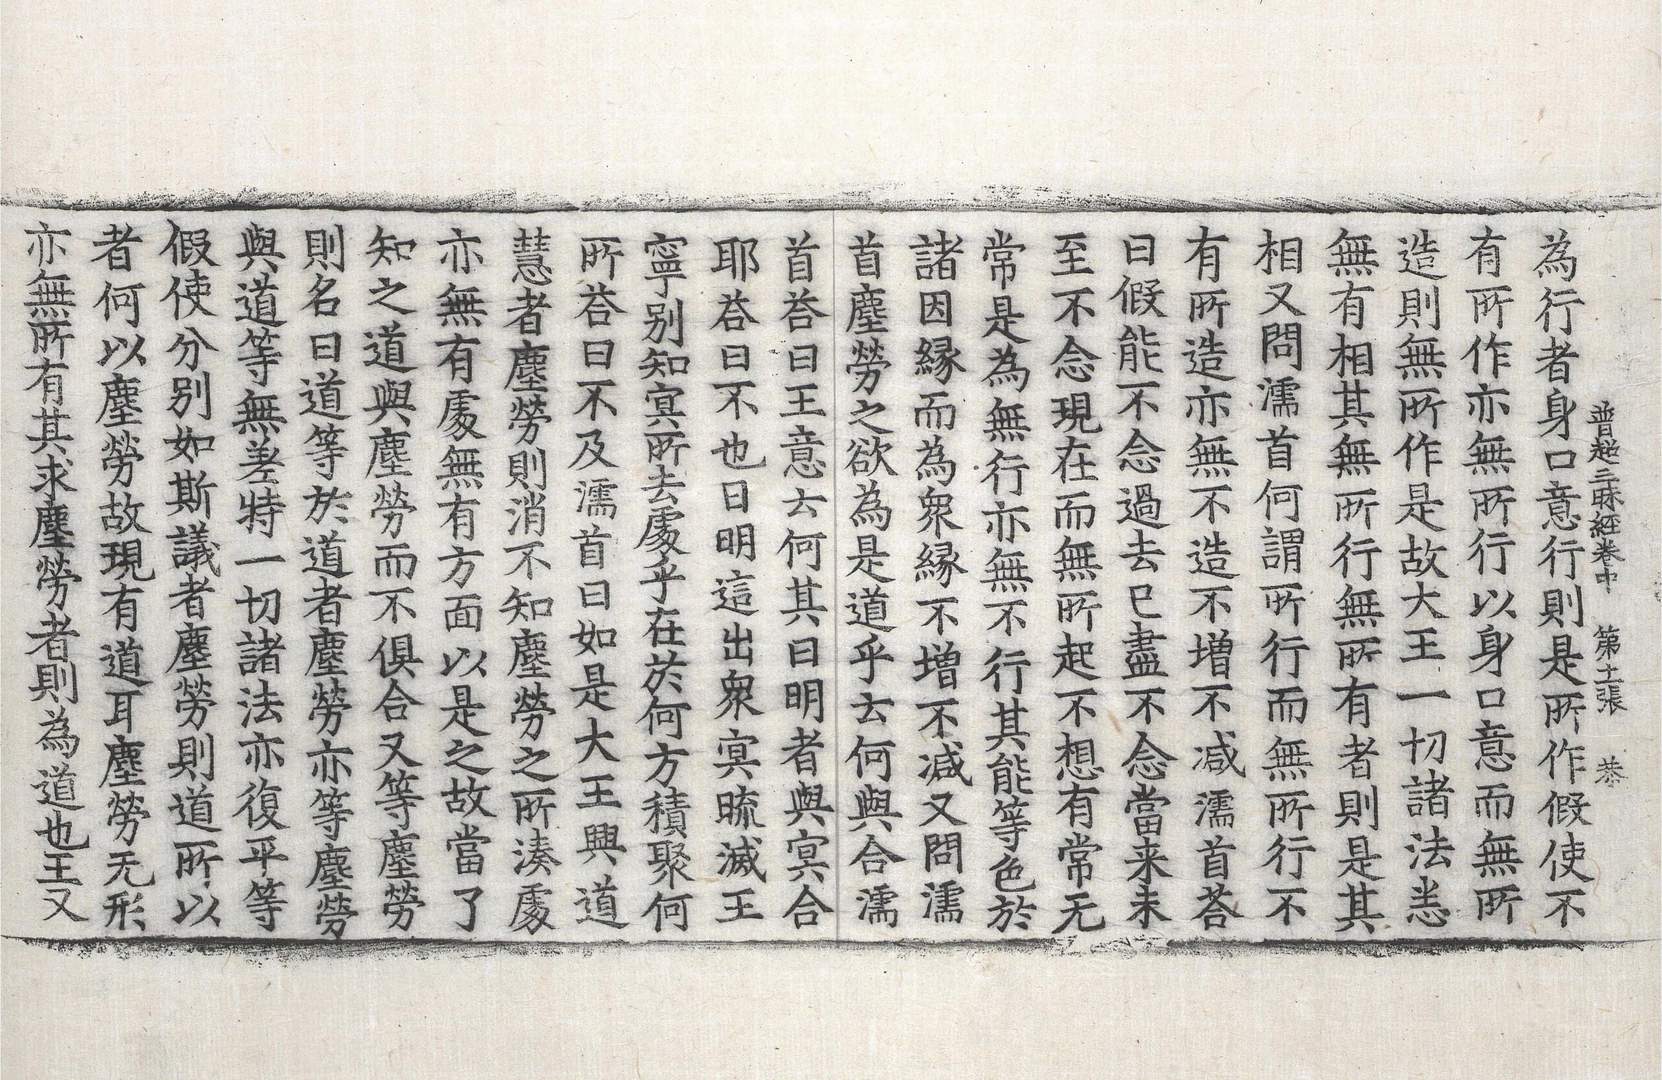 普超三昧經卷中　第十一張　恭
為行者身口意行則是所作假使不
有所作亦無所行以身口意而無所
造則無所作是故大王一切諸法悉
無有相其無所行無所有者則是其
相又問濡首何謂所行而無所行不
有所造亦無不造不增不減濡首荅
曰假能不念過去已盡不念當来未
至不念現在而無所起不想有常无
常是為無行亦無不行其能等色於
諸因縁而為衆縁不增不減又問濡
首塵勞之欲為是道乎去何與合濡
首荅曰王意去何其日明者與冥合
耶荅曰不也日明這出衆冥䟽滅王
寧別知冥所去處乎在於何方積聚何
所荅曰不及濡首曰如是大王興道
慧者塵勞則消不知塵勞之所湊處
亦無有處無有方面以是之故當了
知之道與塵勞而不俱合又等塵勞
則名曰道等於道者塵勞亦等塵勞
與道等無差特一切諸法亦復平等
假使分別如斯議者塵勞則道所以
者何以塵勞故現有道耳塵勞无形
亦無所有其求塵勞者則為道也王又